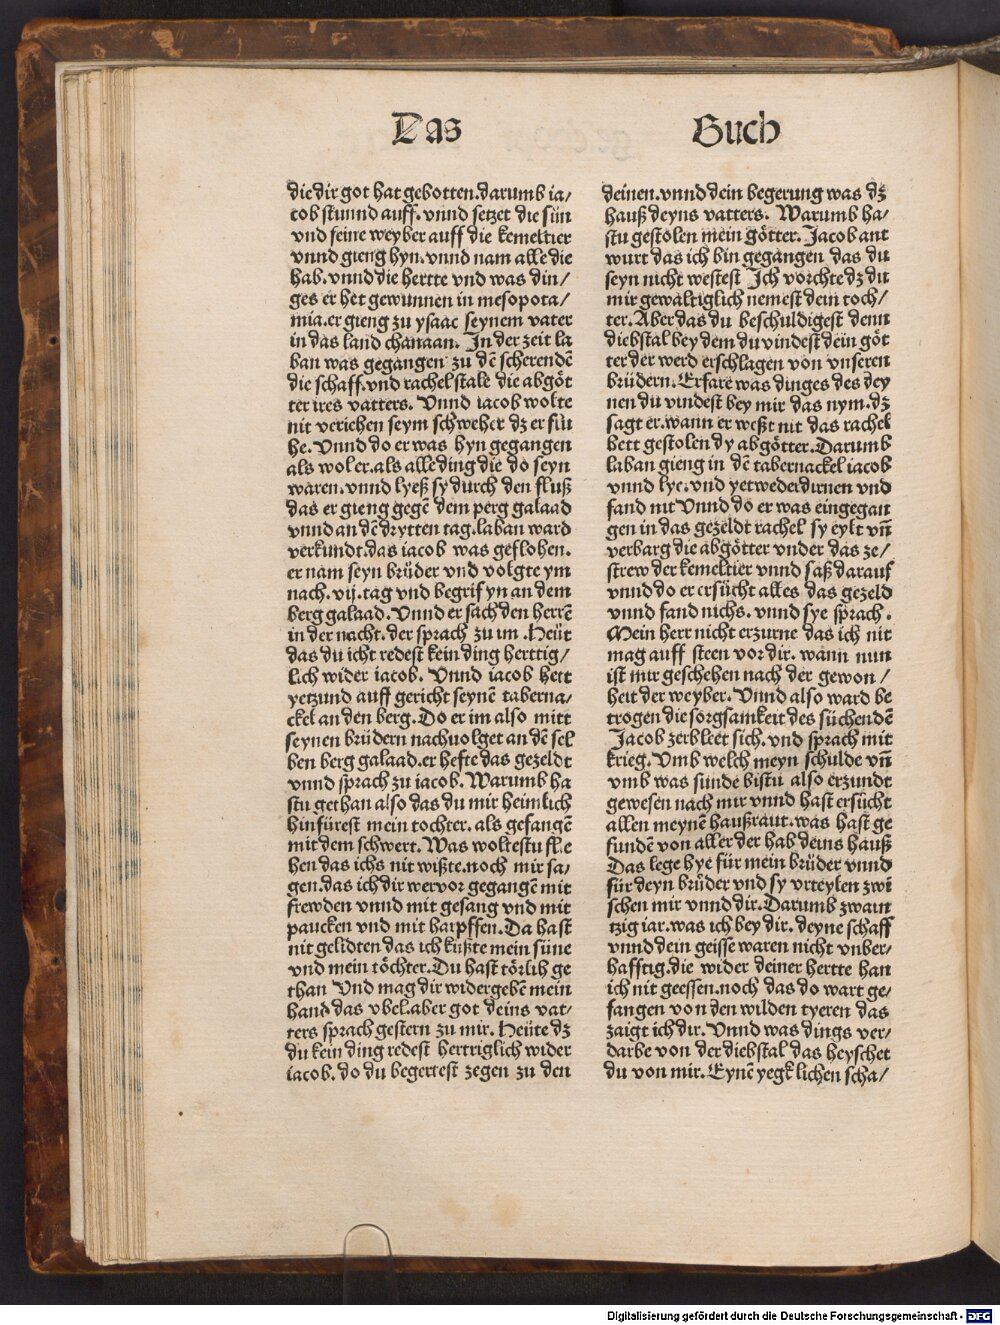 Das
Buch
die dir got hat gebotten.darumb ia/
cob stuund auff.vnnd setzet die sün
vnd seine weyber auff die kemeltier
vnnd gieng hyn.vnnd nam alle die
hab.vnnd die hertte vnd was din/
ges er het gewunnen in mesopota/
mia.er gieng zu ysaac seynem vater
in das land chanaan. In der zeit la
ban was gegangen zu dē scherendē
die schaff.vnd rachel stale die abgöt
ter ires vatters. Vnnd iacob wolte
nit veriehen seym schweher dz er flu
he. Vnnd do er was hyn gegangen
als wol er.als alle ding die do seyn
waren.vnnd lyeß sy durch den fluß
das er gieng gegē dem perg galaad
vnnd an dē drytten tag.laban ward
verkundt.das iacob was geflohen.
er nam seyn brüder vnd volgte ym
nach.vij.tag vnd begrif yn an dem
berg galaad. Vnnd er sach den herrē
in der nacht.der sprach zu im .Heüt
das du icht redest kein ding herttig/
lich wider iacob. Vnnd iacob hett
yetzund auff gericht seynē taberna/
ckel an den berg. Do er im also mitt
seynen brüdern nachuolget an dē sel
ben berg galaad.er hefte das gezeldt
vnnd sprach zu iacob. Warumb ha
stu gethan also das du mir heimlich
hinfürest mein tochter.als gefangē
mit dem schwert. Was woltestu flie
hen das ichs nit wißte.noch mir sa/
gen.das ich dir wer vor gegangē mit
frewden vnnd mit gesang vnd mit
paucken vnd mit harpffen. Da hast
nit gelidten das ich küßte mein süne
vnd mein töchter. Du hast törlih ge
than Vnd mag dir widergebē mein
hand das vbel.aber got deins vat/
ters sprach gestern zu mir. Heüte dz
du kein ding redest hertriglich wider
iacob.do du begertest zegen zu den
deinen.vnnd dein begerung was dz
hauß deyns vatters. Warumb ha/
stu gestolen mein götter. Jacob ant
wurt das ich bin gegangen das du
seyn nicht westest Ich vorchte dz du
mir gewaltiglich nemest dein toch/
ter. Aber das du beschuldigest denn
diebstal bey dem du vindest dein göt
ter der werd erschlagen von vnseren
brüdern. Erfare was dinges des dey
nen du vindest bey mir das nym.dz
sagt er.wann er weßt nit das rachel
hett gestolen dy abgötter. Darumb
laban gieng in dē tabernackel iacob
vnnd lye.vnd yetweder dirnen vnd
fand nit Vnnd do er was eingegan
gen in das gezeldt rachel sy eylt vn̄
verbarg die abgötter vnder das ze/
strew der kemeltier vnnd saß darauf
vnnd do er ersücht alles das gezeld
vnnd fand nichs. vnnd sye sprach .
Mein herr nicht erzurne das ich nit
mag auff steen vor dir. wann nun
ist mir geschehen nach der gewon /
heit der weyber. Vnnd also ward be
trogen die sorgsamkeit des süchendē
Jacob zerbleet sich.vnd sprach mit
krieg. Vmb welch meyn schulde vn̄
vmb was sunde bistu also erzundt
gewesen nach mir vnnd hast ersücht
allen meynē haußraut.was hast ge
fundē von aller der hab deins hauß
Das lege hye für mein brüder vnnd
für deyn brüder vnd sy vrteylen zwi
schen mir vnnd dir. Darumb zwain
tzig iar.was ich bey dir. deyne schaff
vnnd dein geisse waren nicht vnber-
hafftig.die wider deiner hertte han
ich nit geessen.noch das do wart ge/
fangen von den wilden tyeren das
zaigt ich dir. Vnnd was dings ver-
darbe von der diebstal das heyschet
du von mir. Eynē yegklichen scha/
Digitalisierung gefördert durch die Deutsche Forschungsgemeinschaft - DFG